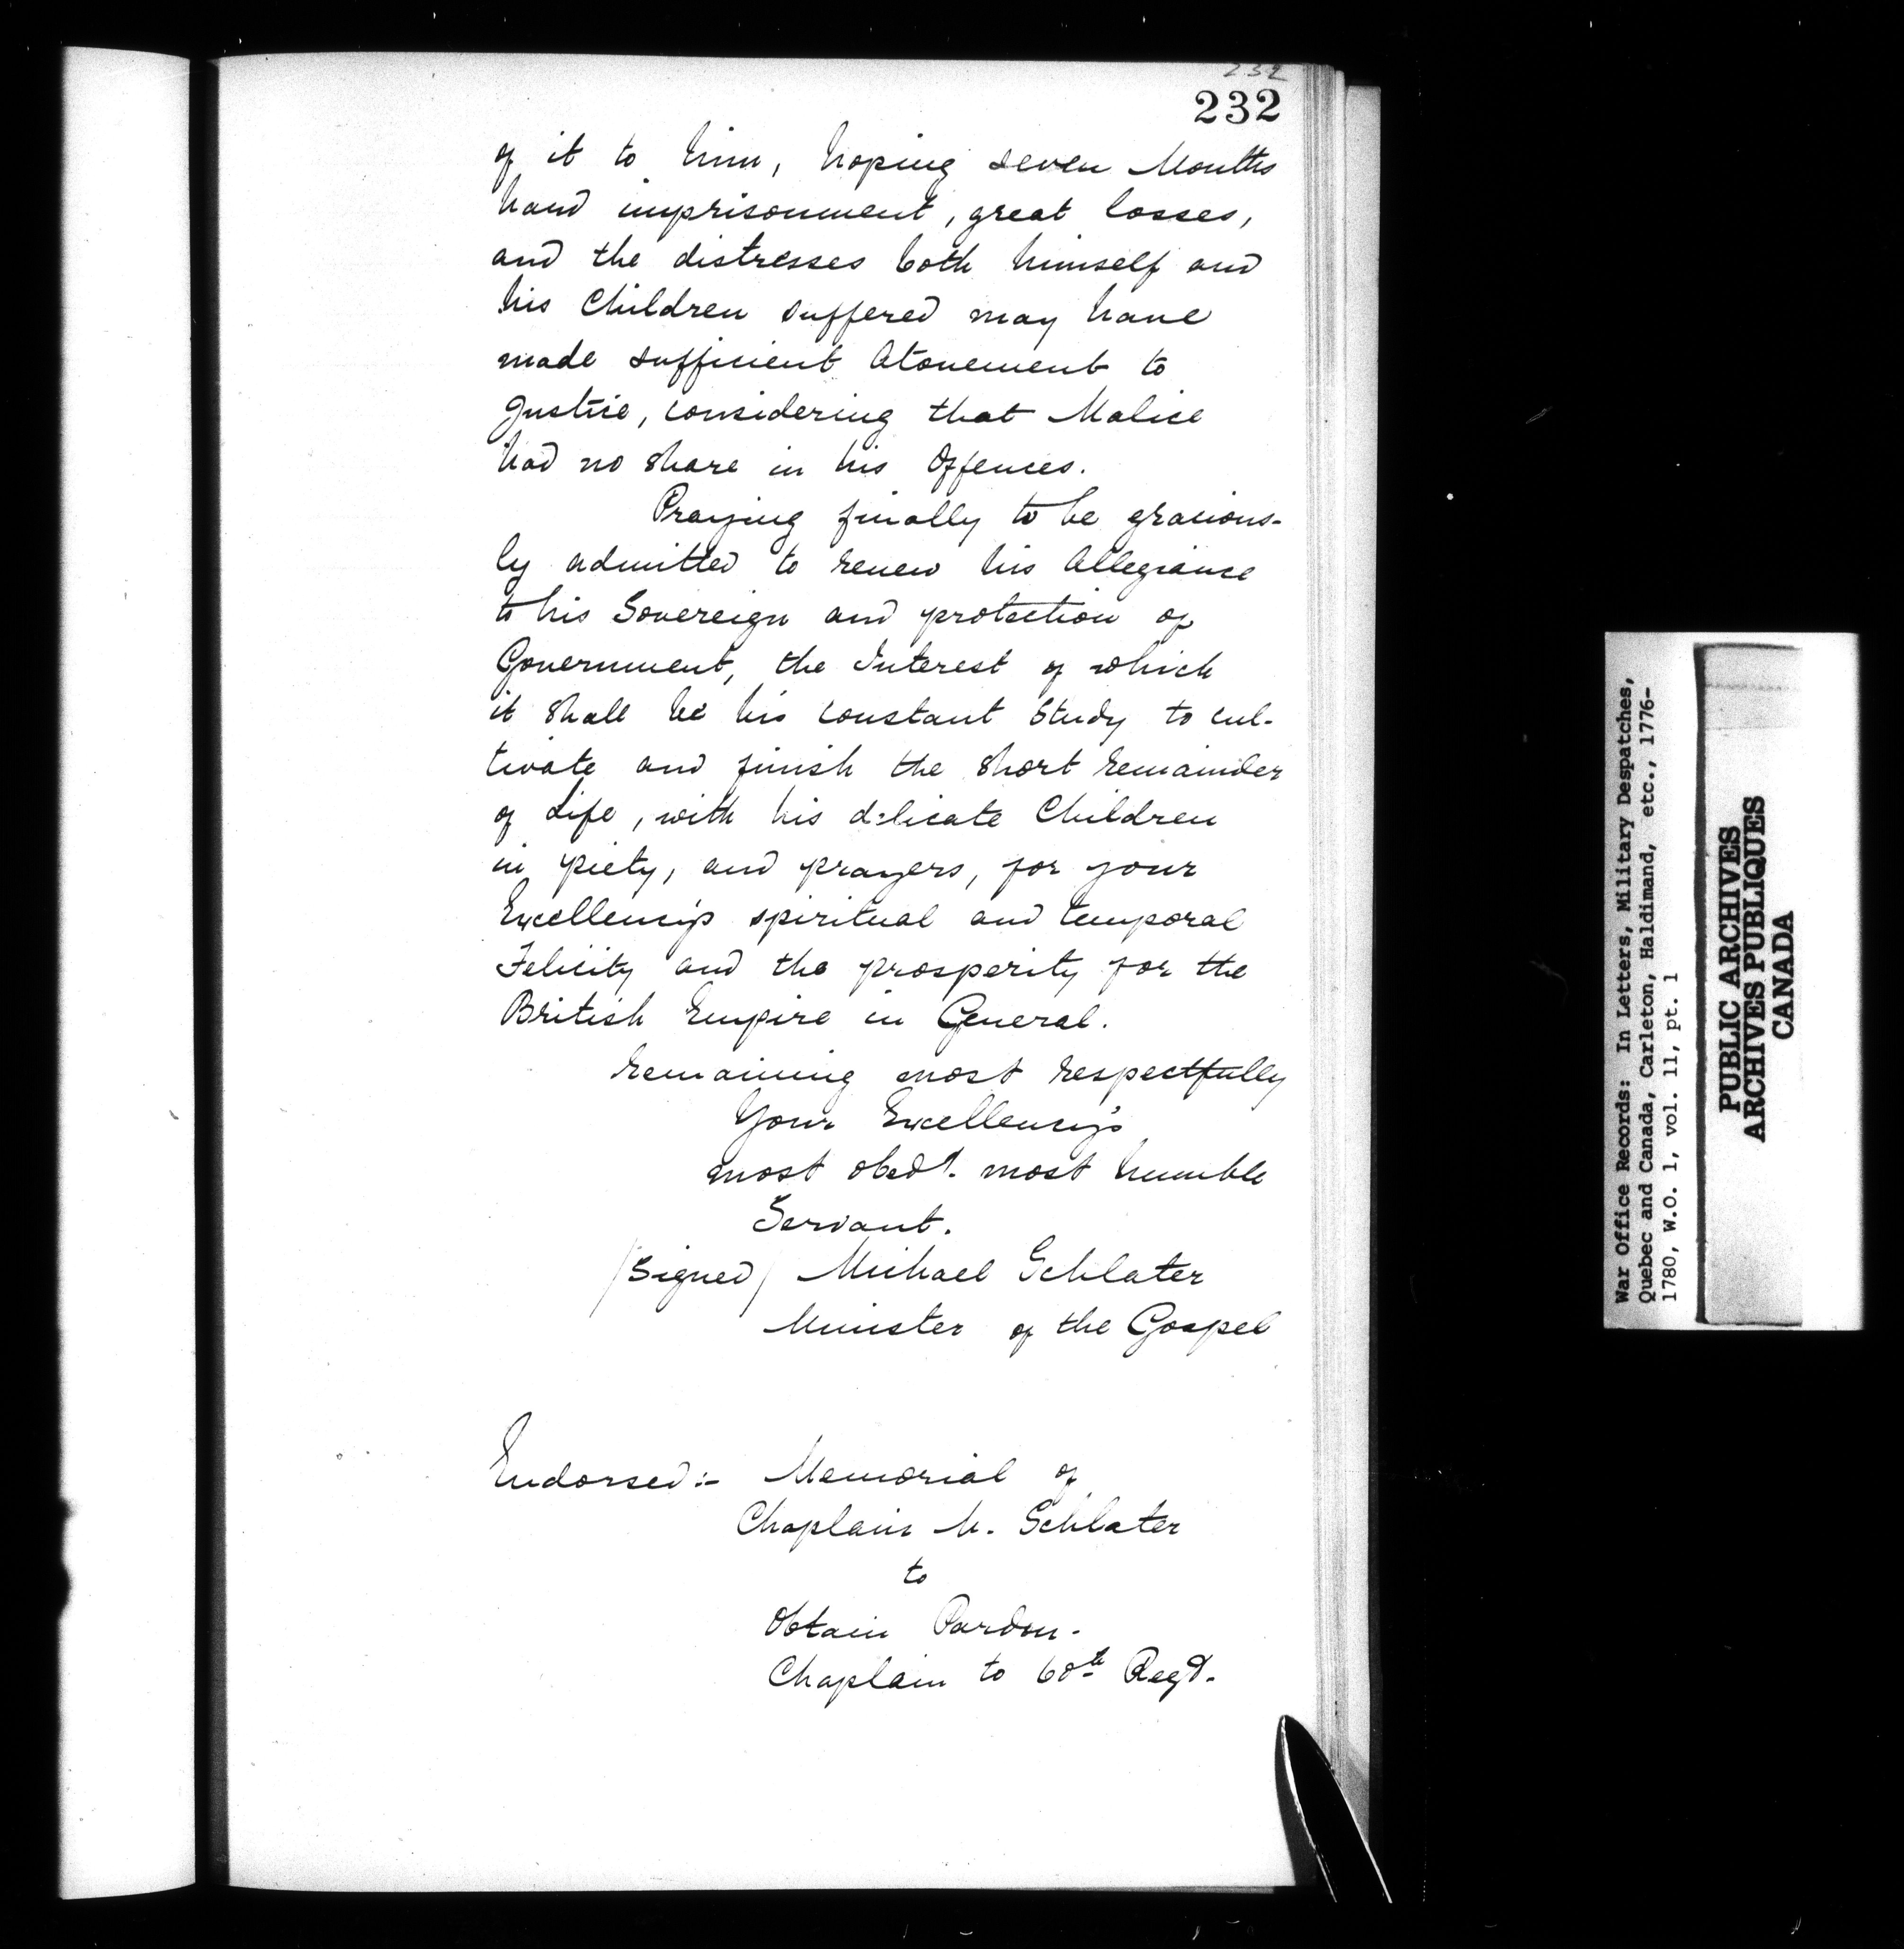 232
232
of it to him, hoping seven Months
hard imprisonment, great losses,
and the distresses both himself and
his Children suffered may have
made sufficient Atonement to
Justice, considering that Malice
had no share in his Offences.
Praying finally to be gracious-
ly admitted to renew his Allegiance
to his Sovereign and protection of
Government, the Interest of which
it shall be his constant Study to cul-
tivate and finish the short remainder
of Life, with his delicate Children
in piety, and prayers, for your
Excellency's spiritual and temporal
Felicity and the prosperity for the
British Empire in General.
Remaining most respectfully
Your Excellency's
most obedt. most humble
Servant.
/Signed/ Michael Schlater
Minister of the Gospel
Endorsed:- Memorial of
Chaplain M. Schlater
to
Obtain Pardon.
Chaplain to 60th Regt.
War Office Records: In Letters, Military Despatches,
Quebec and Canada, Carleton, Haldimand, etc., 1776-
1780, W.O. 1, vol. 11, pt. 1
PUBLIC ARCHIVES
ARCHIVES PUBLIQUES
CANADA